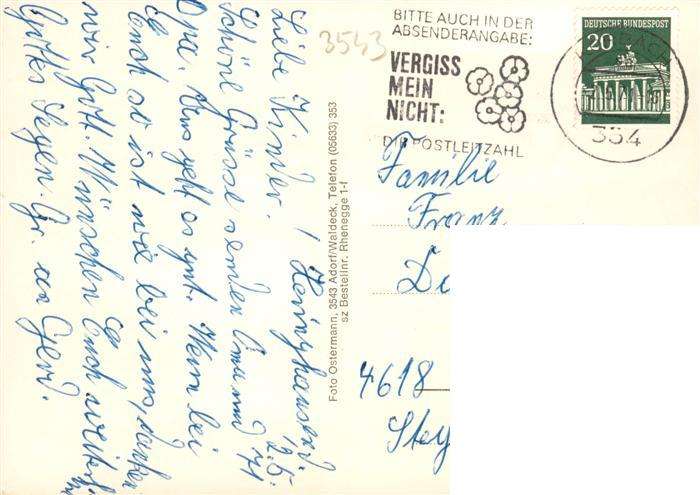 Liebe Kinder! Heringhausen,
2.5.71
Schöne Grüsse senden Oma und
Opa. Uns geht es gut. Wenn bei
Euch so ist wie bei uns, danken
wir Gott. Wünschen Euch weiterhin
Gottes Segen. Gr. an Gerd.
3543
Foto Ostermann, 3543 Adorf/Waldeck, Telefon (05633) 353
sz Bestellnr. Rhenegge 1-f
BITTE AUCH IN DER
ABSENDERANGABE:
VERGISS
MEIN
NICHT:
DIE POSTLEITZAHL
DEUTSCHE BUNDESPOST
20
354
Familie
Franz
4618